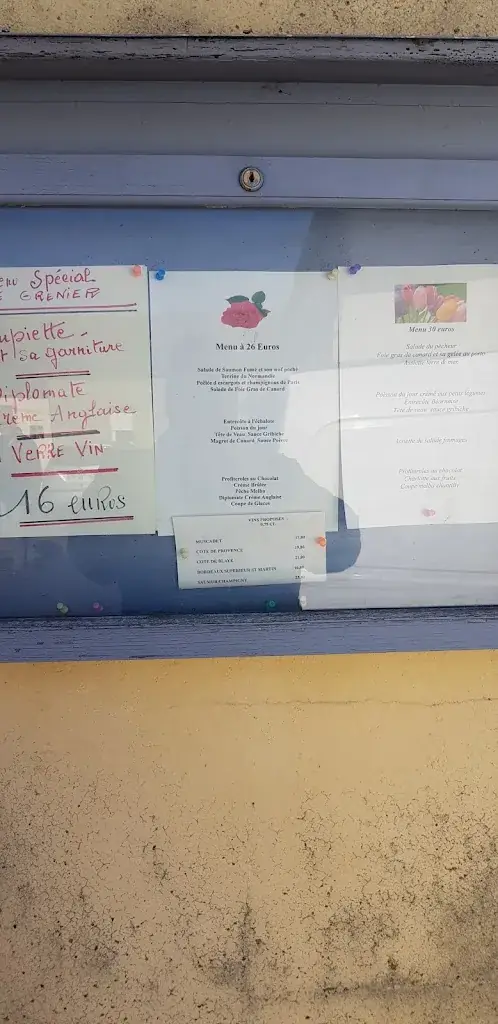 Spécial
GRENIER
upiette
sa garniture
iplomate
rème Anglaise
VERRE VIN
16 euros
Menu à 26 Euros
Salade de Saumon Fumé et son œuf poché
Terrine de Normandie
Poêlée d'escargots et champignons de Paris
Salade de Foie Gras de Canard
Entrecôte à l'échalote
Poisson du jour
Tête de Veau, Sauce Gribiche
Magret de Canard, Sauce Poivre
Profiteroles au Chocolat
Crème Brûlée
Pêche Melba
Diplomate Crème Anglaise
Coupe de Glaces
VINS PROPOSÉS
0,75 CL
MUSCADET
COTE DE PROVENCE
COTE DE BLAYE
BORDEAUX SUPERIEUR ST MARTIN
SAUMUR CHAMPIGNY
Menu 30 euros
Salade du pêcheur
Foie gras de canard et sa gelée au porto
Assiette terre & mer
Poisson du jour
Tête de veau sauce gribiche
Assiette de salade fromages
Profiteroles au chocolat
aux fruits
Coupe melba chantilly